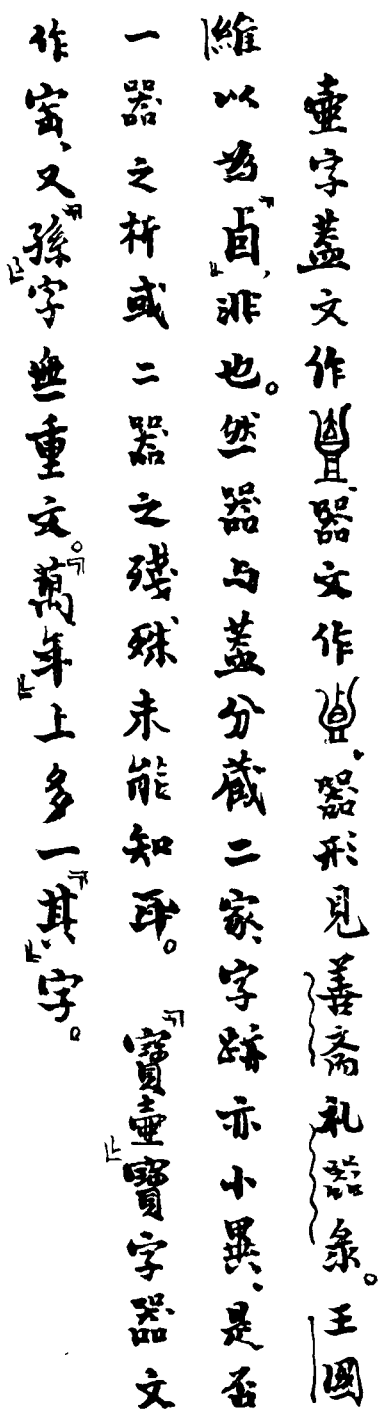 壺字蓋文作、器文作、器形見善斋礼器彔。王國
維以為『卣』,非也。然器与蓋分藏二家、字跡亦小異、是否
一器之析或二器之殘殊未能知耳。『寶壺』寶字器文
作、又『孫』字無重文。『萬年』上多一『其』字。